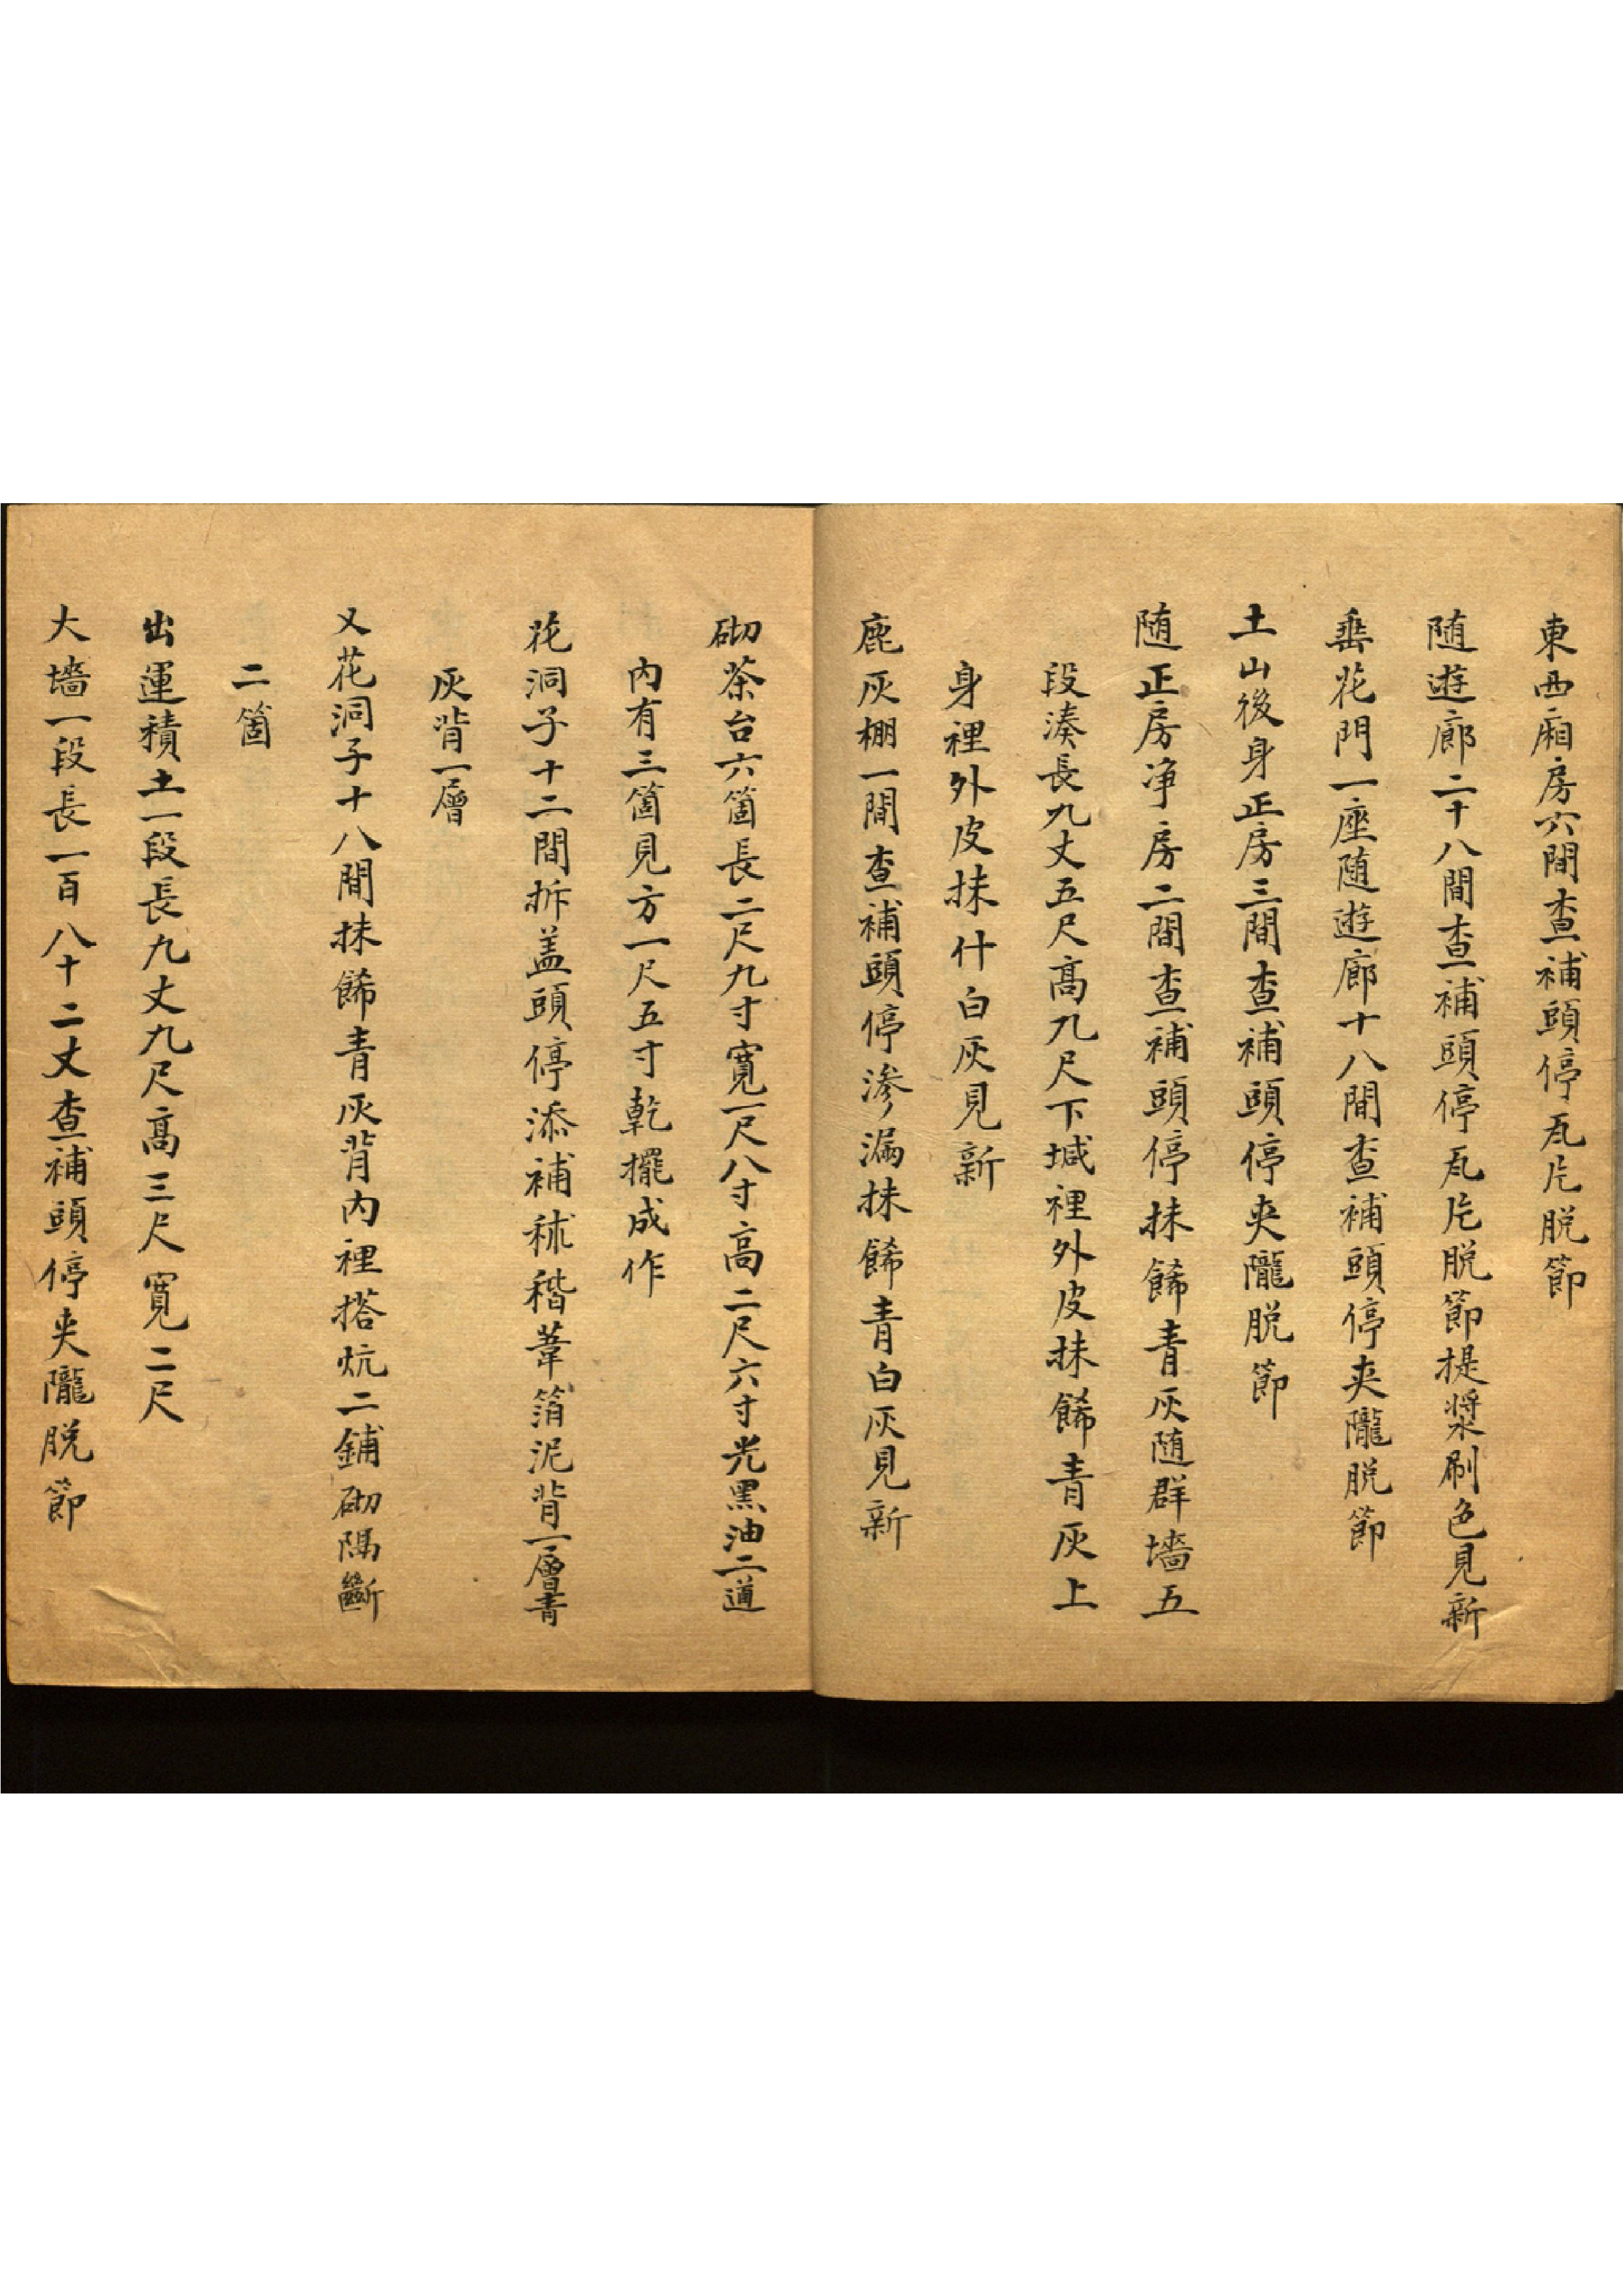 東西廂房六間查補頭停瓦片脱節
随遊廊二十八間查補頭停瓦片脱節提漿刷色見新
垂花門一座随遊廊十八間查補頭停夾隴脱節
土山後身正房三間查補頭停夾隴脱節
随正房净房二間查補頭停抹餙青灰随群墻五
段湊長九丈五尺高九尺下堿裡外皮抹餙青灰上
身裡外皮抹什白灰見新
鹿灰棚一間查補頭停渗漏抹餙青白灰見新
砌茶台六箇長二尺九寸寬一尺八寸高二尺六寸光黑油二道
内有三箇見方一尺五寸乾擺成作
花洞子十二間拆盖頭停添補秫稭葦箔泥背一層青
灰背一層
又花洞子十八間抹餙青灰背内裡搭炕二鋪砌隔斷
二箇
出運積土一段長九丈九尺高三尺寬二尺
大墻一段長一百八十二丈查補頭停夾隴脱節